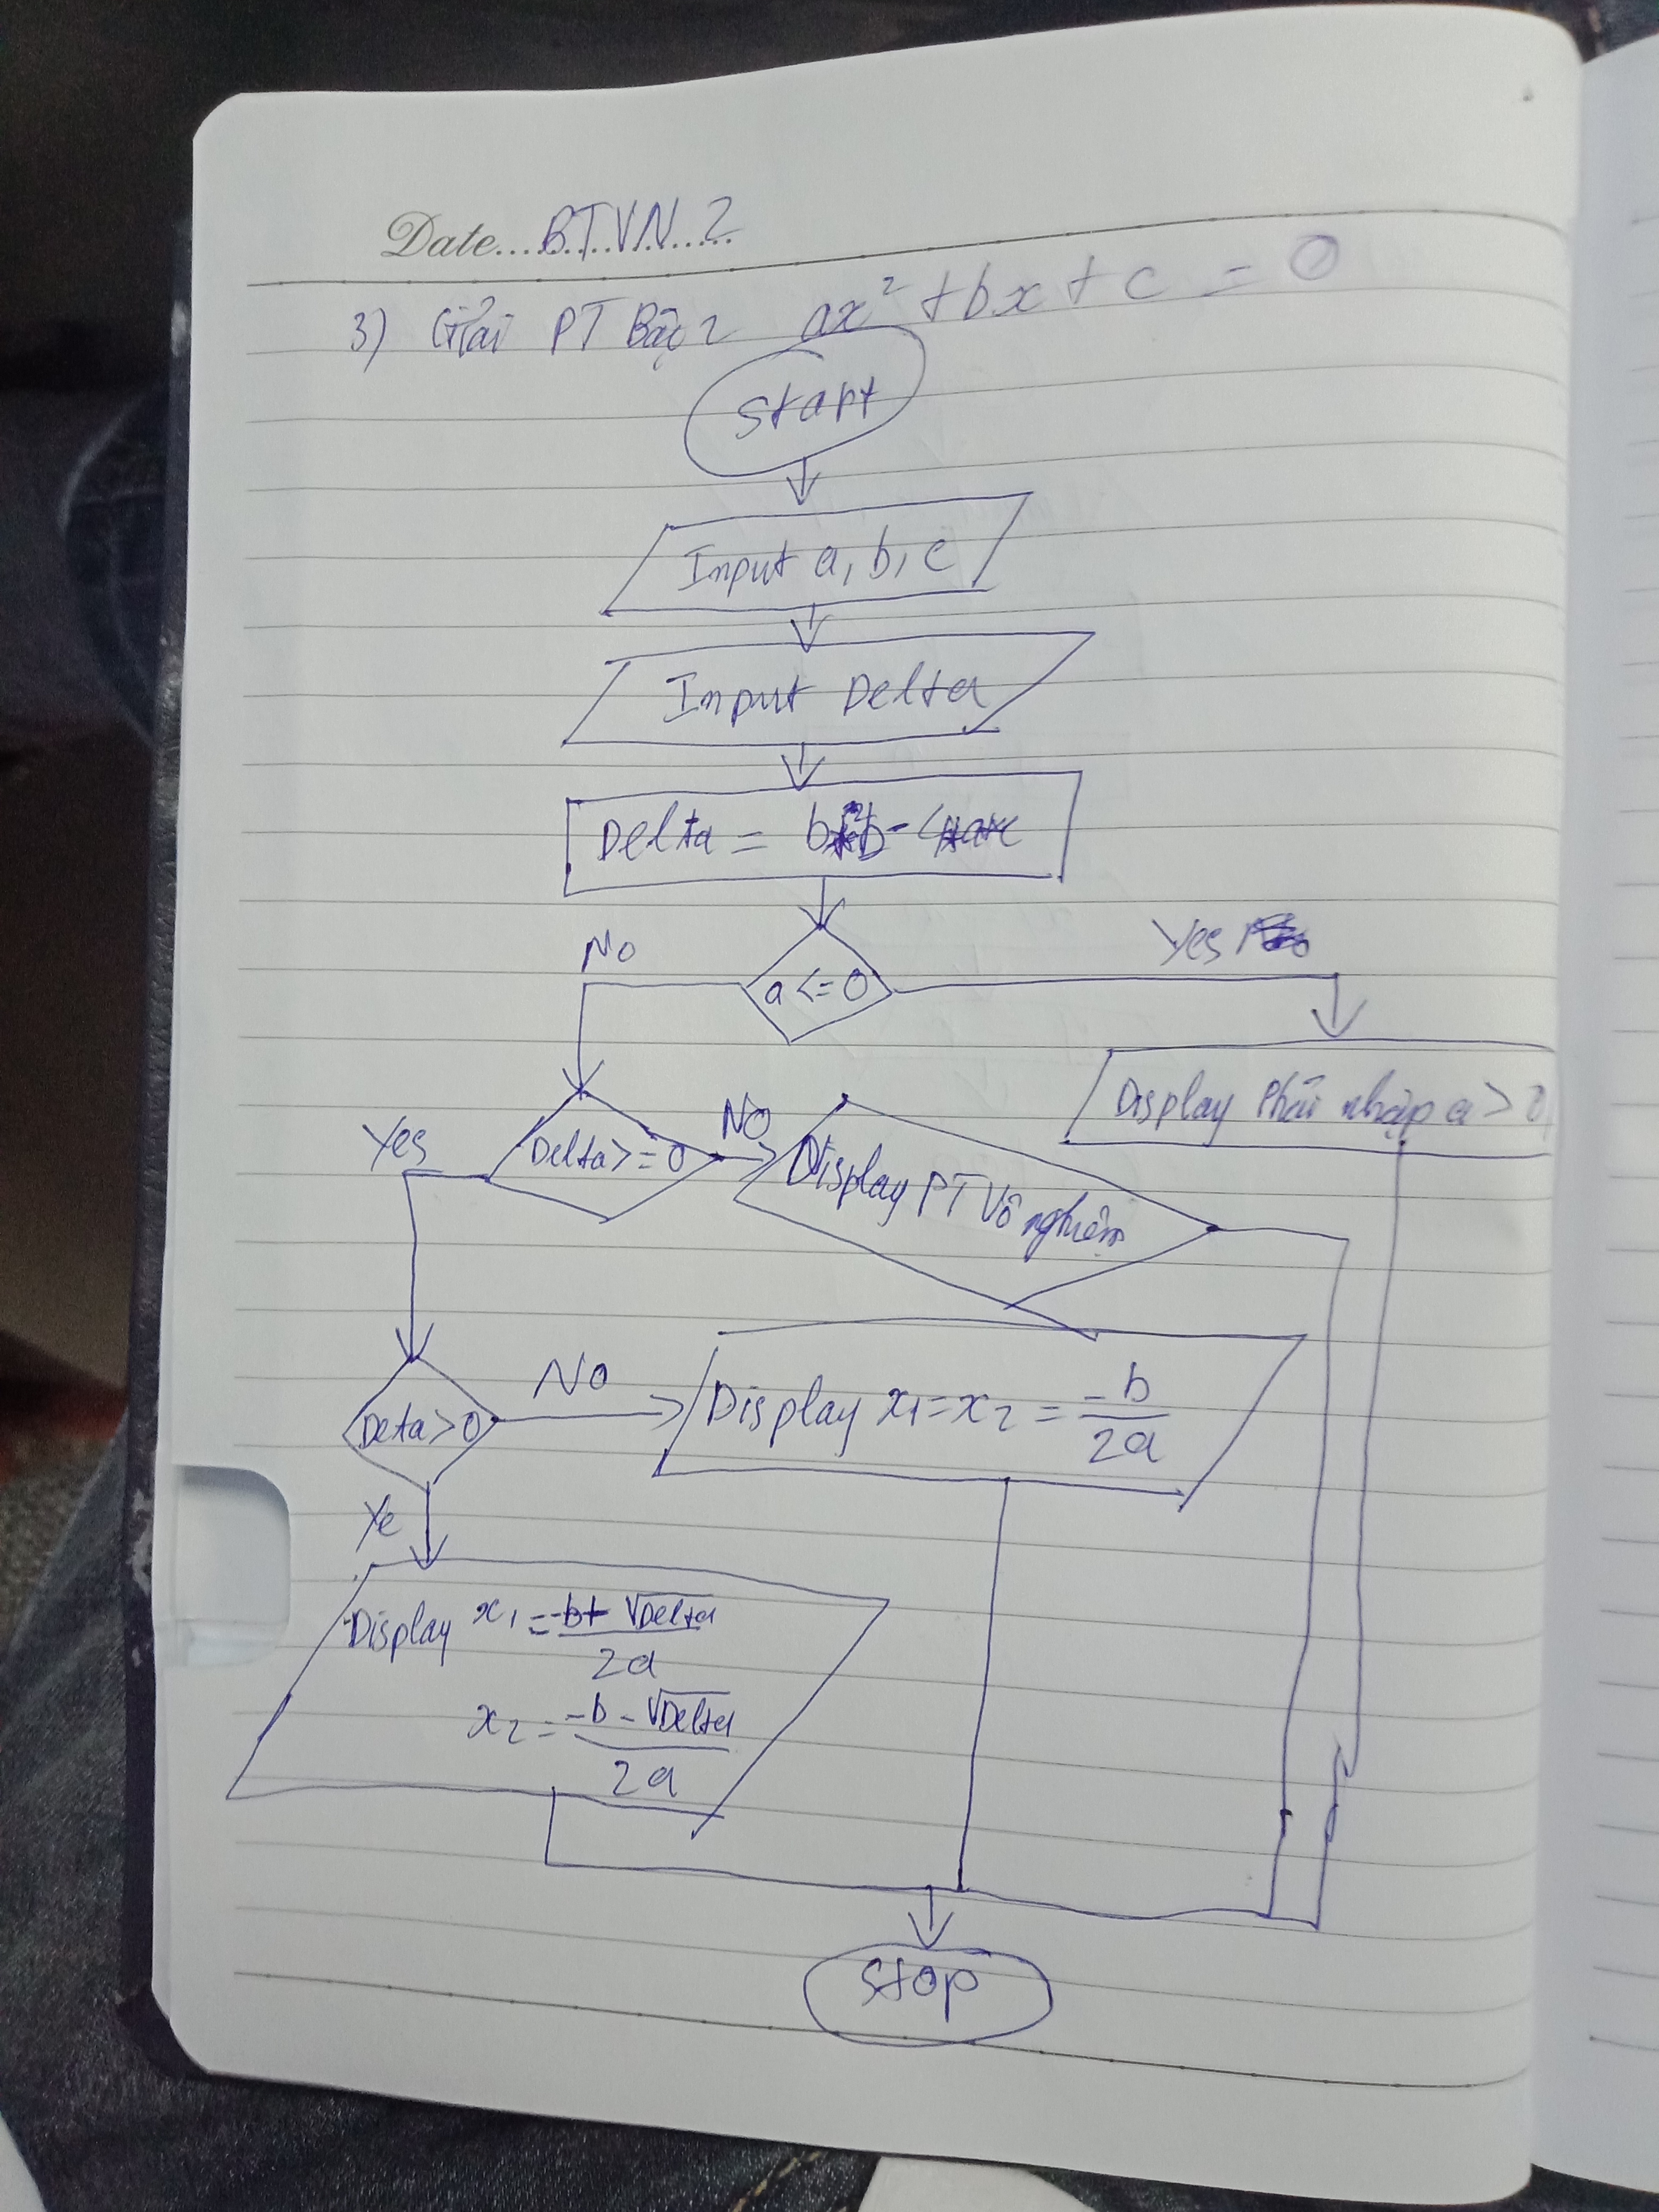 Date....BTVN 2
3) Giải PT Bậc 2 ax² + bx + c = 0
Start
Input a, b, c
Input Delta
Delta = b² -
No
Yes
a <= 0
Display Phải nhập a > 0
Yes
Delta >= 0
NO
Display PT Vô nghiệm
Deta > 0
NO
Display x1 = x2 = -b/2a
Ye
Display x1 = -b + √Delta/2a
x2 = -b - √Delta/2a
Stop